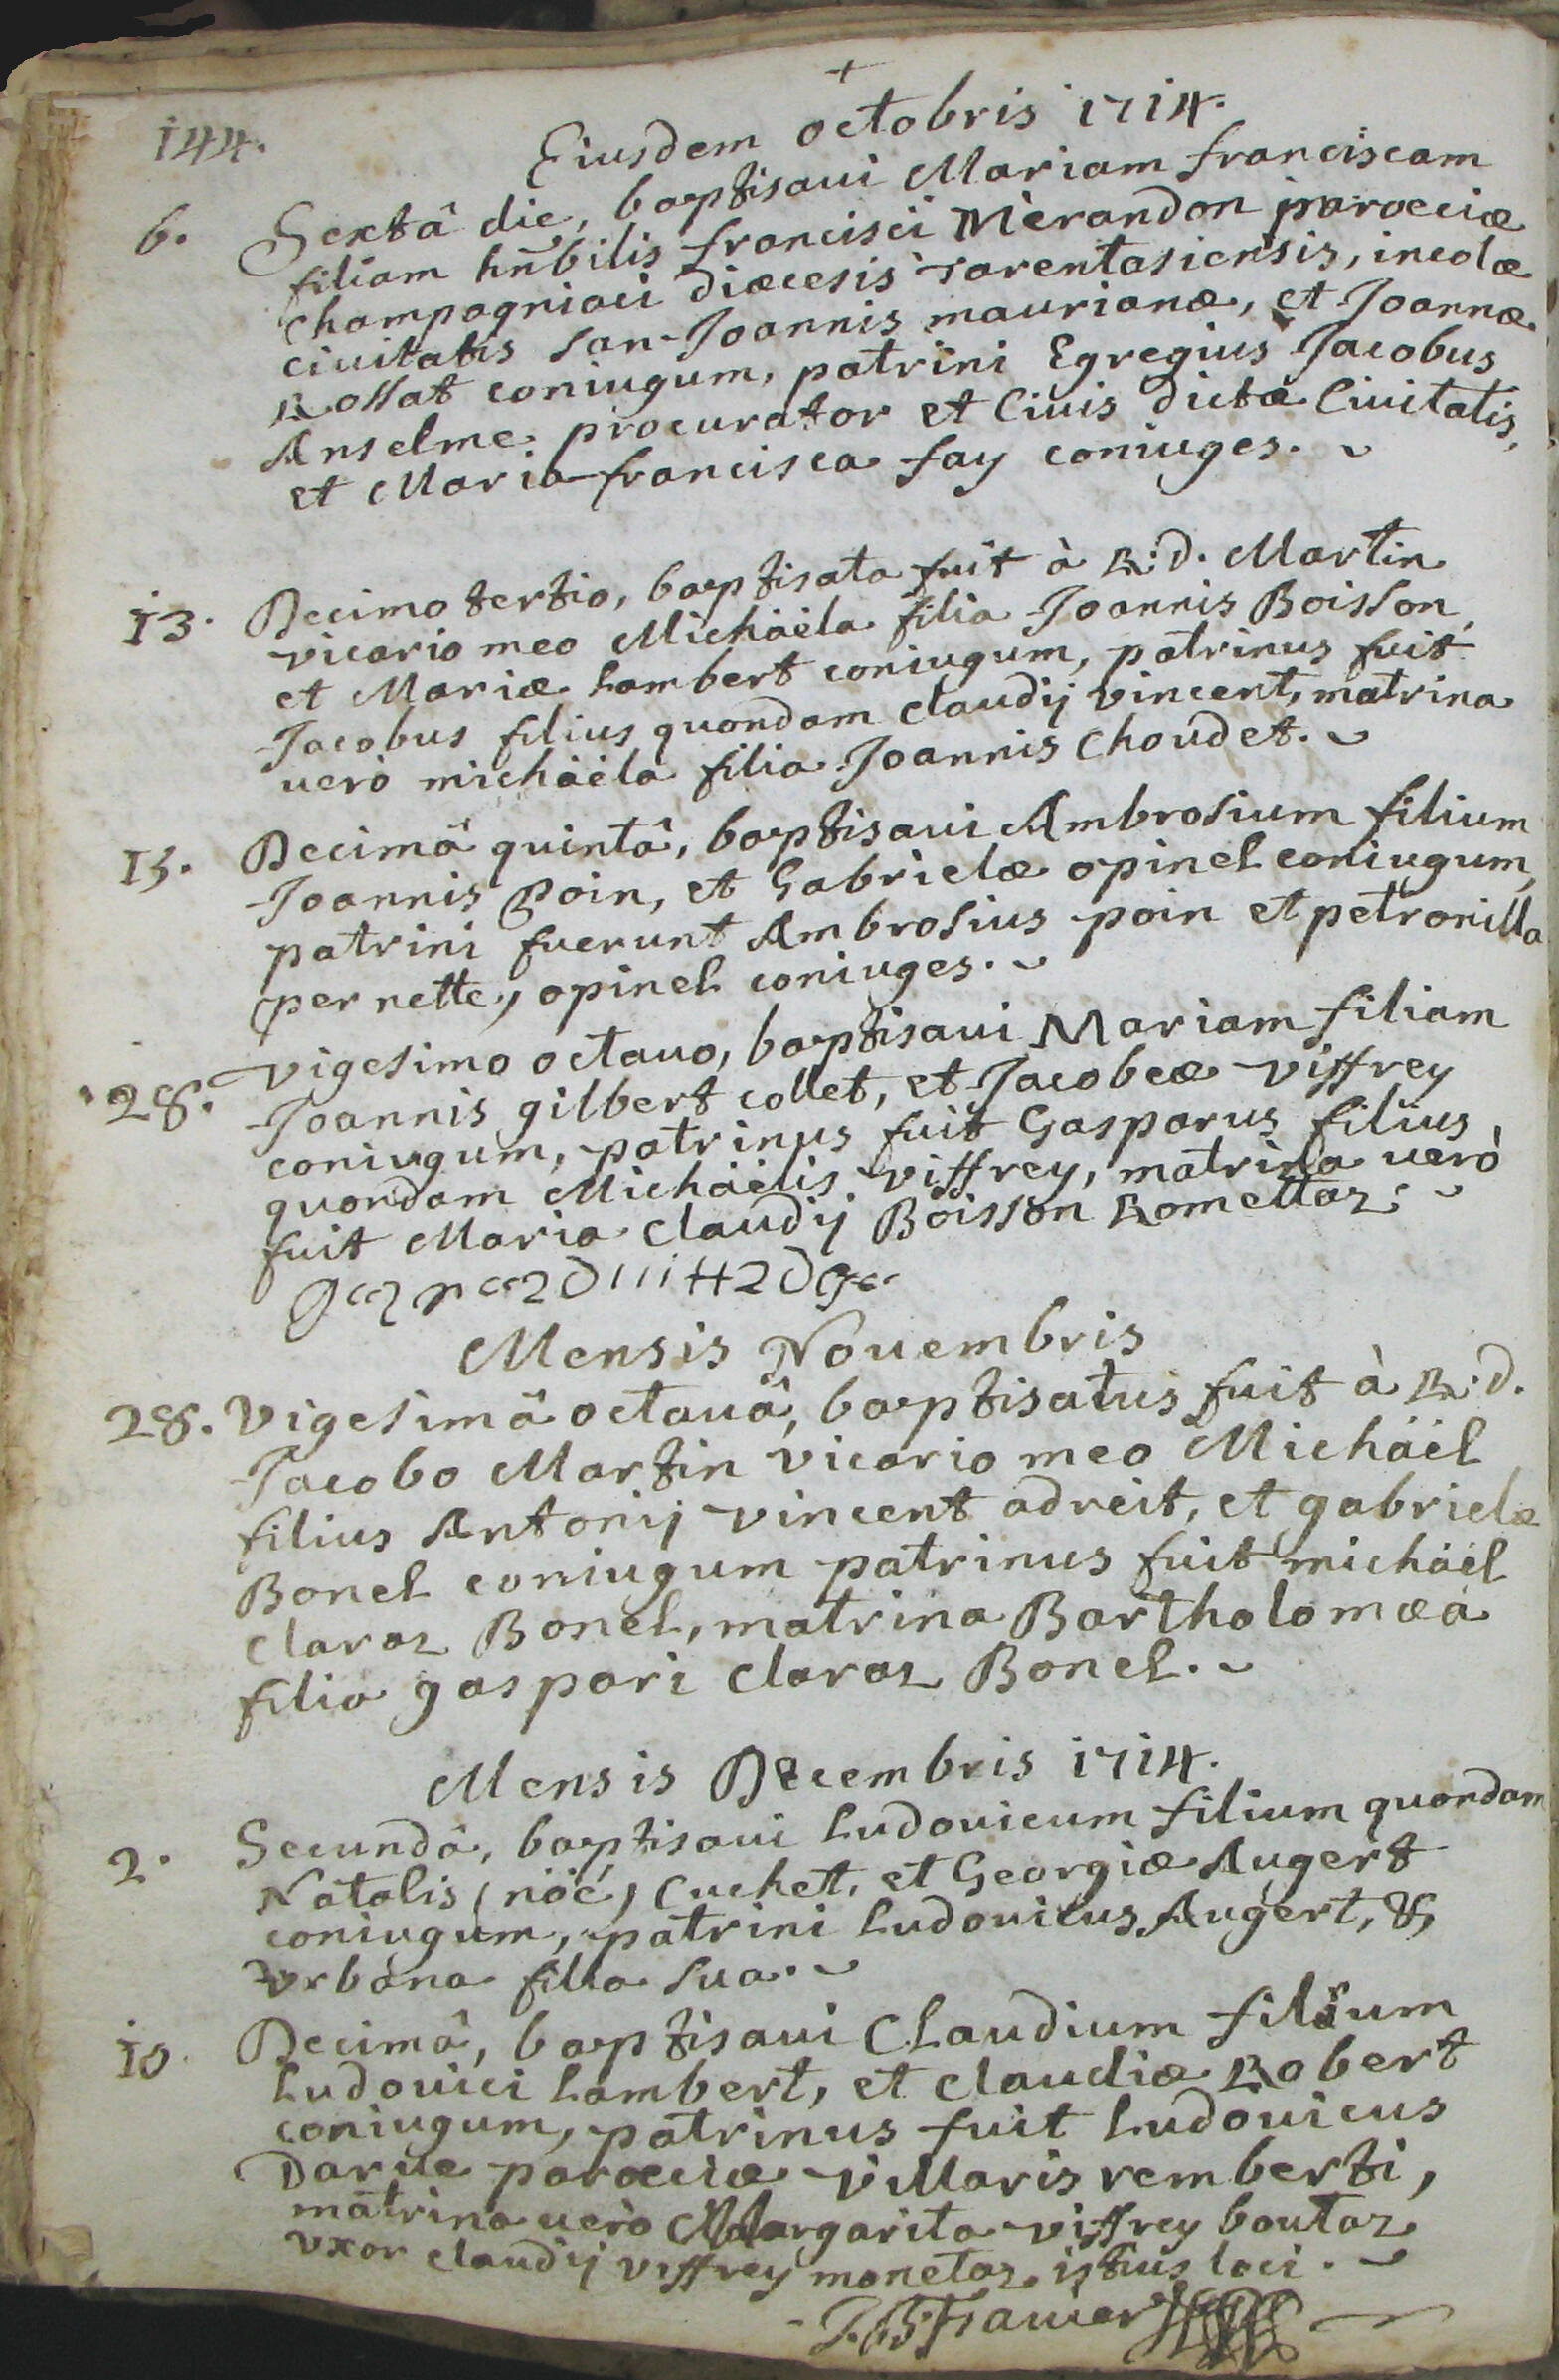 +
144. Eiusdem octobris 1714.
6. Sextâ die, baptisaui Mariam franciscam
filiam hñbilis francisci Merandon parœciæ
Champagniaci diœcesis Tarentasiensis, incolæ
ciuitatis San-Joannis maurianæ, et Joannæ
Rossat coniugum, patrini Egregius Jacobus
Anselme procurator et Ciuis dictæ Ciuitatis,
et Maria-francisca fay coniuges.
13. Decimo tertio, baptisata fuit à R.d. Martin
vicario meo Michäéla filia Joannis Boisson,
et Mariæ Lambert coniugum, patrinus fuit
Jacobus filius quondam claudij vincent, matrina
uerò michäéla filia Joannis Choudet.
15. Decimâ quintâ, baptisaui Ambrosium filium
Joannis Poin, et Gabrielæ opinel coniugum,
patrini fuerunt Ambrosius poin et petronilla
(pernette) opinel coniuges.
28. Vigesimo octauo, baptisaui Mariam filiam
Joannis gilbert collet, et Jacobeæ viffrey
coniugum, patrinus fuit Gasparus filius
quondam Michäélis viffrey, matrina uerò
fuit Maria claudij Boisson Romettaz.
Mensis Nouembris
28. Vigesimâ octauâ, baptisatus fuit à R.d.
Jacobo Martin vicario meo Michäél
filius Antonij vincent adreit, et gabrielæ
Bonel coniugum patrinus fuit michäél
claraz Bonel, matrina Bartholomæa
filia gaspari claraz Bonel.
Mensis Decembris 1714.
2. Secundâ, baptisaui Ludouicum filium quondam
Natalis (nöé) Cuchet, et Georgiæ Augert
coniugum, patrini Ludouicus Augert, &
Vrbana filia sua.
10 Decimâ, baptisaui Claudium filium
Ludouici Lambert, et claudiæ Robert
coniugum, patrinus fuit Ludouicus
Darue parœciæ villaris remberti,
matrina uerò Margarita viffrey boutaz
vxor claudij viffrey monetaz istius loci.